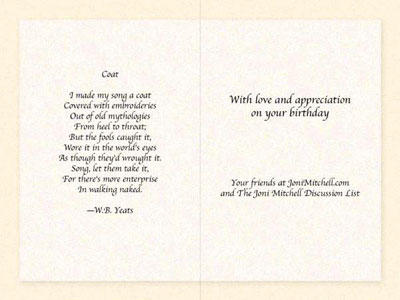 Coat
I made my song a coat
Covered with embroideries
Out of old mythologies
From heel to throat;
But the fools caught it,
Wore it in the world's eyes
As though they'd wrought it.
Song, let them take it,
For there's more enterprise
In walking naked.
—W.B. Yeats
With love and appreciation
on your birthday
Your friends at JoniMitchell.com
and The Joni Mitchell Discussion List